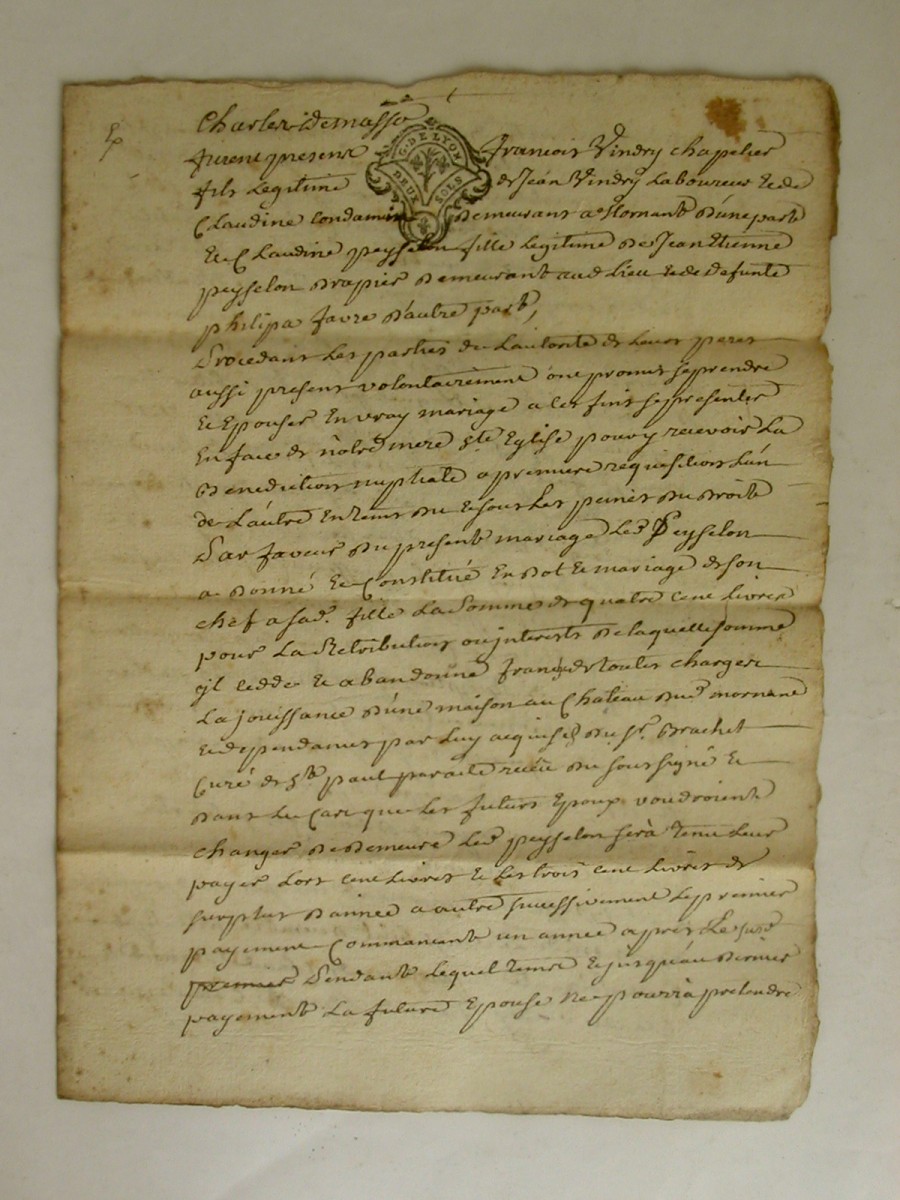 Charles Demasso
furent presens françois Vindry chapelier
G. DE LYON
DEUX SOLS
fils legitime de Jean Vindry Laboureur et de
Claudine Condamin Demeurant a Mornant D'une part
et Claudine peysselon fille legitime De Jean Etienne
peysselon Drapier Demeurant aud lieu et de defunte
philipa favre D'autre part,
Procedant Les parties de L'autorité de Leurs peres
aussi present volontairement ont promis se prendre
et Epouser En vray mariage a ces fins se presenter
En face de nôtre mere ste Eglise pour y recevoir La
Benediction nuptiale a premiere requisition L'un
de L'autre En tems Du et sous Les peines Du Droit
Par faveur Du present mariage Led Peysselon
a Donné et Constitué En Dot et mariage de son
chef a sad. fille La somme de quatre cent livres
pour La Retribution ou interets De laquelle somme
jl cedde et abandonne franche de toutes charges
La jouissance D'une maison au Chateau Dud mornant
et dependances par Luy acquise Du sr. Brachet
Curé de st paul par acte reçu Du soussigné et
Dans Le Cas que Les futurs Epoux voudroient
changer De Demeure Led peysselon sera tenu Leur
payer Lors cent Livres et Les trois cent Livres de
surplus D'année a autre successivement Le premier
payement Commencant un année apres Le susd
premier Pendant Lequel tems et jusqu'au Dernier
payement La future Epouse ne pourra pretendre